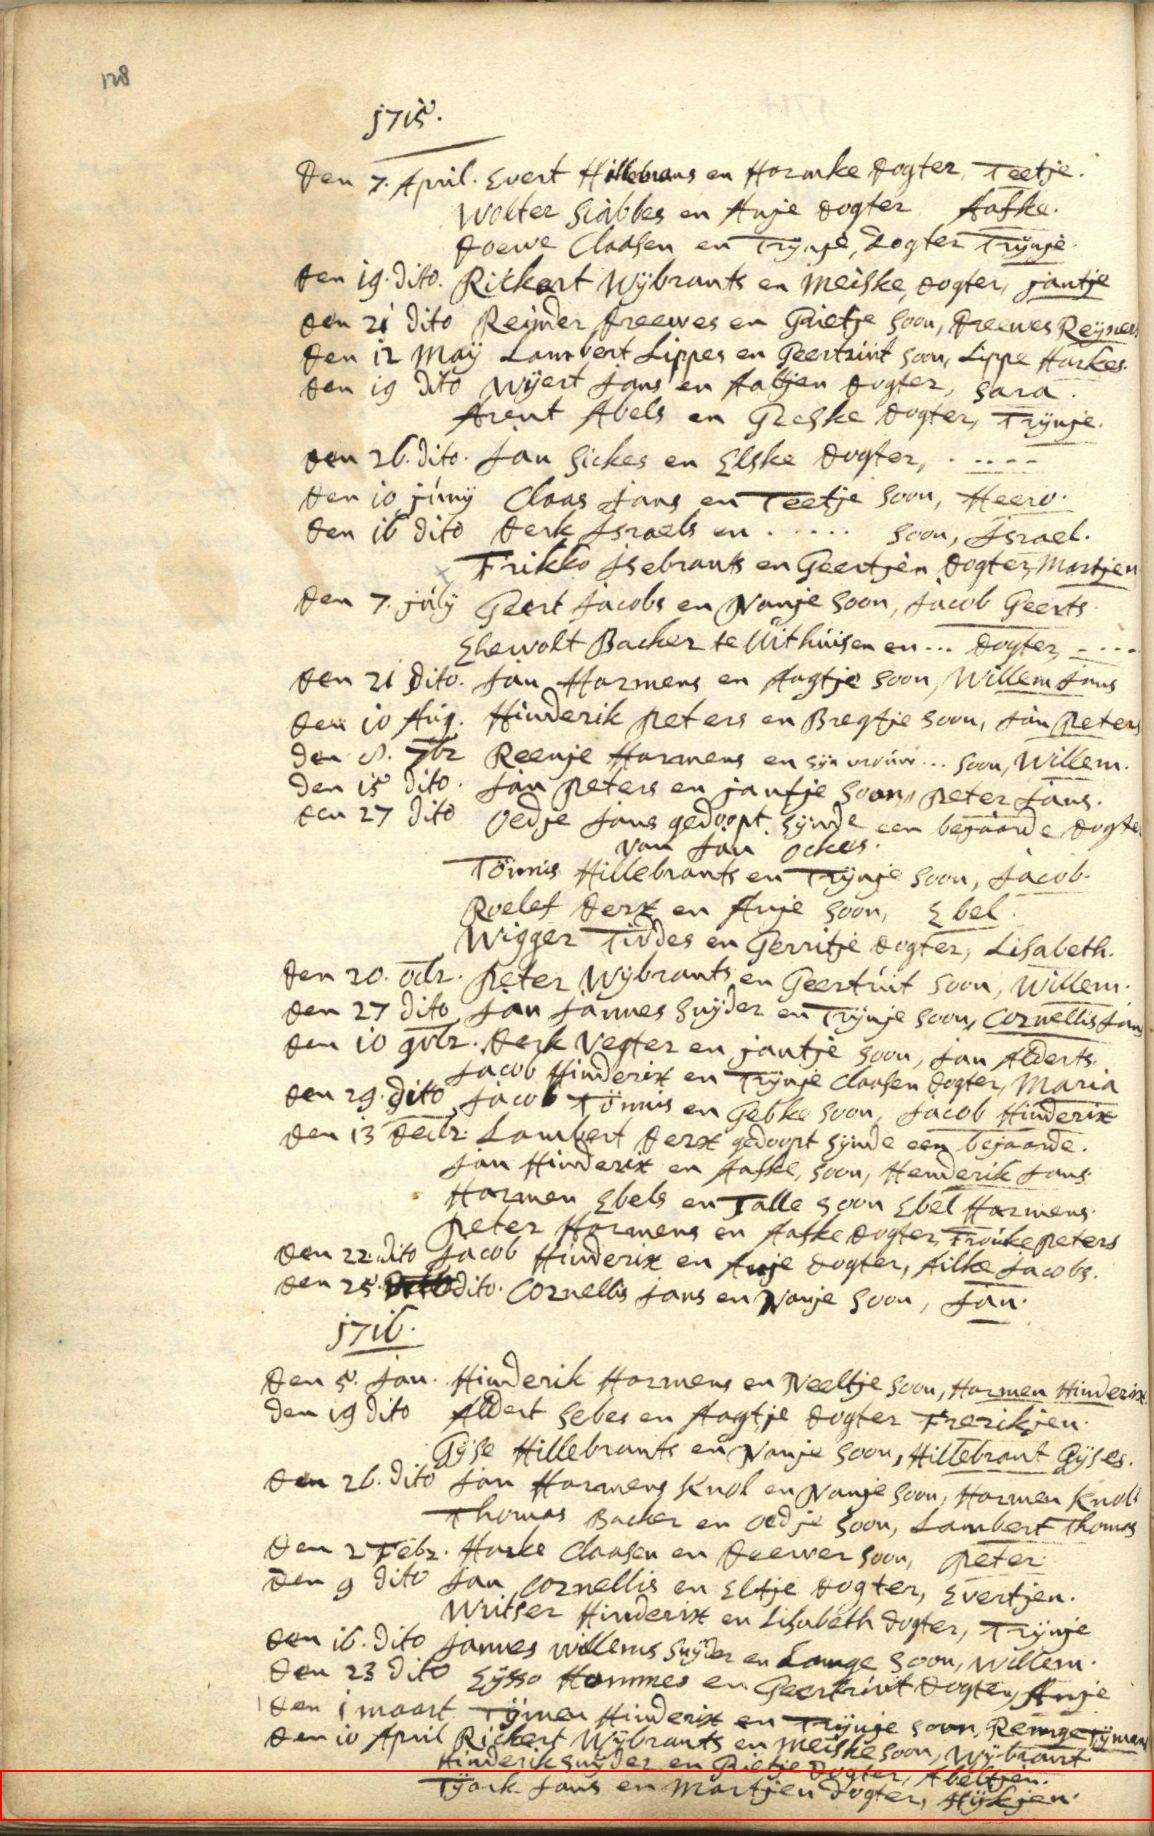 128
1715.
Den 7. April. Evert Hillebrans en Harmke Dogter, Teetje.
Wolter Siabbes en Anje Dogter Aafke.
Doewe Claasen en Trijnje, Dogter Trijnje.
Den 19. dito. Rickert Wijbrants en Meiske, Dogter, jantje
Den 21 dito Reijnder Freewes en Grietje Soon, Freewes Reijners
Den 12 Maij Lambert Lippes en Geertruit Soon, Lippe Harkes.
Den 19 dito Wijert Jans en Aaltjen Dogter, Sara.
Arent Abels en Greske Dogter, Trijnje.
Den 26. dito. Jan Sickes en Elske Dogter, .....
Den 10 junij Claas Jans en Teetje Soon, Heero.
Den 16 dito Derk Israels en ..... Soon, Israel.
Frikko Isebrants en Geertjen Dogter, Martjen
Den 7. julij Geert Jacobs en Nanje Soon, Jacob Geerts.
Ehewolt Backer te Uithuisen en ... Dogter, ....
Den 21 dito. Jan Harmens en Aagtje Soon, Willem Jans
Den 10 Aug. Hinderik Peters en Bregtje Soon, Jan Peters
Den 8. 7br Reenje Harmens en sijn vrouw ... Soon, Willem.
Den 15 dito. Jan Peters en jantje Soon, Peter Jans.
Den 27 dito Oedje Jans gedoopt sijnde een bejaarde Dogter
van Jan Ockes.
Tonnis Hillebrants en Trijnje Soon, Jacob.
Roelef Derx en Anje Soon, Ebel.
Wigger Tiddes en Gerritje Dogter, Lisabeth.
Den 20. Octr. Peter Wijbrants en Geertruit Soon, Willem.
Den 27 dito Jan Jannes Snijder en Trijnje Soon, Cornellis Jans
Den 10 9vbr. Derk Vegter en jantje Soon, Jan Alderts.
Jacob Hinderix en Trijnje Claasen Dogter, Maria
Den 29. dito Jacob Tonnis en Gebke Soon, Jacob Hinderix
Den 13 Decbr. Lambert Derx gedoopt sijnde een bejaarde.
Jan Hinderix en Aafke, Soon, Henderik Jans.
Harmen Ebels en Talle Soon Ebel Harmens.
Peter Harmens en Aafke Dogter, Frouke Peters
Den 22. dito Jacob Hinderix en Anje Dogter, Ailke Jacobs.
Den 25. dito. Cornellis Jans en Nanje Soon, Jan.
1716.
Den 5. Jan. Hinderik Harmens en Neeltje Soon, Harmen Hinderix
Den 19 dito Aldert Sebes en Aagtje Dogter Frerikjen.
Gijse Hillebrants en Nanje Soon, Hillebrant Gijses.
Den 26. dito Jan Harmens Knol en Nanje Soon, Harmen Knols
Thomas Backer en Oedje Soon, Lambert Thomas
Den 2 Febr. Harke Claasen en Doewer Soon, Peter
Den 9 dito Jan Cornellis en Eltje Dogter, Evertjen.
Writser Hinderix en Lisabeth Dogter, Trijnje
Den 16. dito Jannes Willems Snijder en Lange Soon, Willem.
Den 23 dito Eijsso Hommes en Geertruit Dogter, Anje
Den 1 maart Tijmen Hinderix en Trijnje Soon, Rennge Tijmens
Den 10 April Rickert Wijbrants en Meiske Soon, Wijbrant
Hinderik Snijder en Grietje Dogter, Abeltjen.
Tjark Jans en Martjen Dogter, Hijkjen.